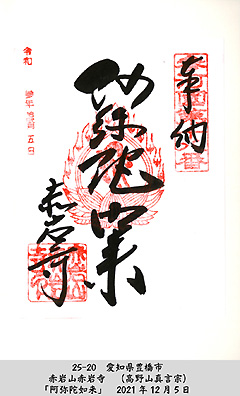 奉納
阿弥陀如来
赤岩寺
令和
25-20 愛知県豊橋市
赤岩山赤岩寺 (高野山真言宗)
「阿弥陀如来」 2021年12月5日